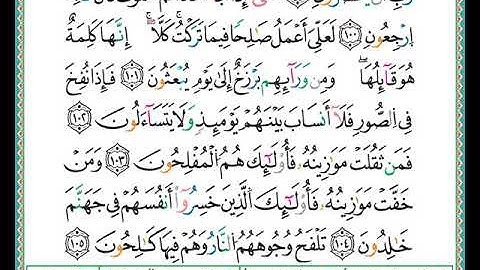 إِرْجِعُونِ ١٠٠ لَعَلِّي أَعْمَلُ صَالِحًا فِيمَا تَرَكْتُ ۚ كَلَّا ۚ إِنَّهَا كَلِمَةٌ
هُوَ قَآئِلُهَا ۖ وَمِن وَرَآئِهِم بَرْزَخٌ إِلَىٰ يَوْمِ يُبْعَثُونَ ١٠١ فَإِذَا نُفِخَ
فِي الصُّورِ فَلَآ أَنسَابَ بَيْنَهُمْ يَوْمَئِذٍ وَلَا يَتَسَآءَلُونَ ١٠٢
فَمَن ثَقُلَتْ مَوَازِينُهُ فَأُولَٰٓئِكَ هُمُ الْمُفْلِحُونَ ١٠٣ وَمَنْ
خَفَّتْ مَوَازِينُهُ فَأُولَٰٓئِكَ الَّذِينَ خَسِرُوٓا أَنفُسَهُمْ فِي جَهَنَّمَ
خَالِدُونَ ١٠٤ تَلْفَحُ وُجُوهَهُمُ النَّارُ وَهُمْ فِيهَا كَالِحُونَ ١٠٥